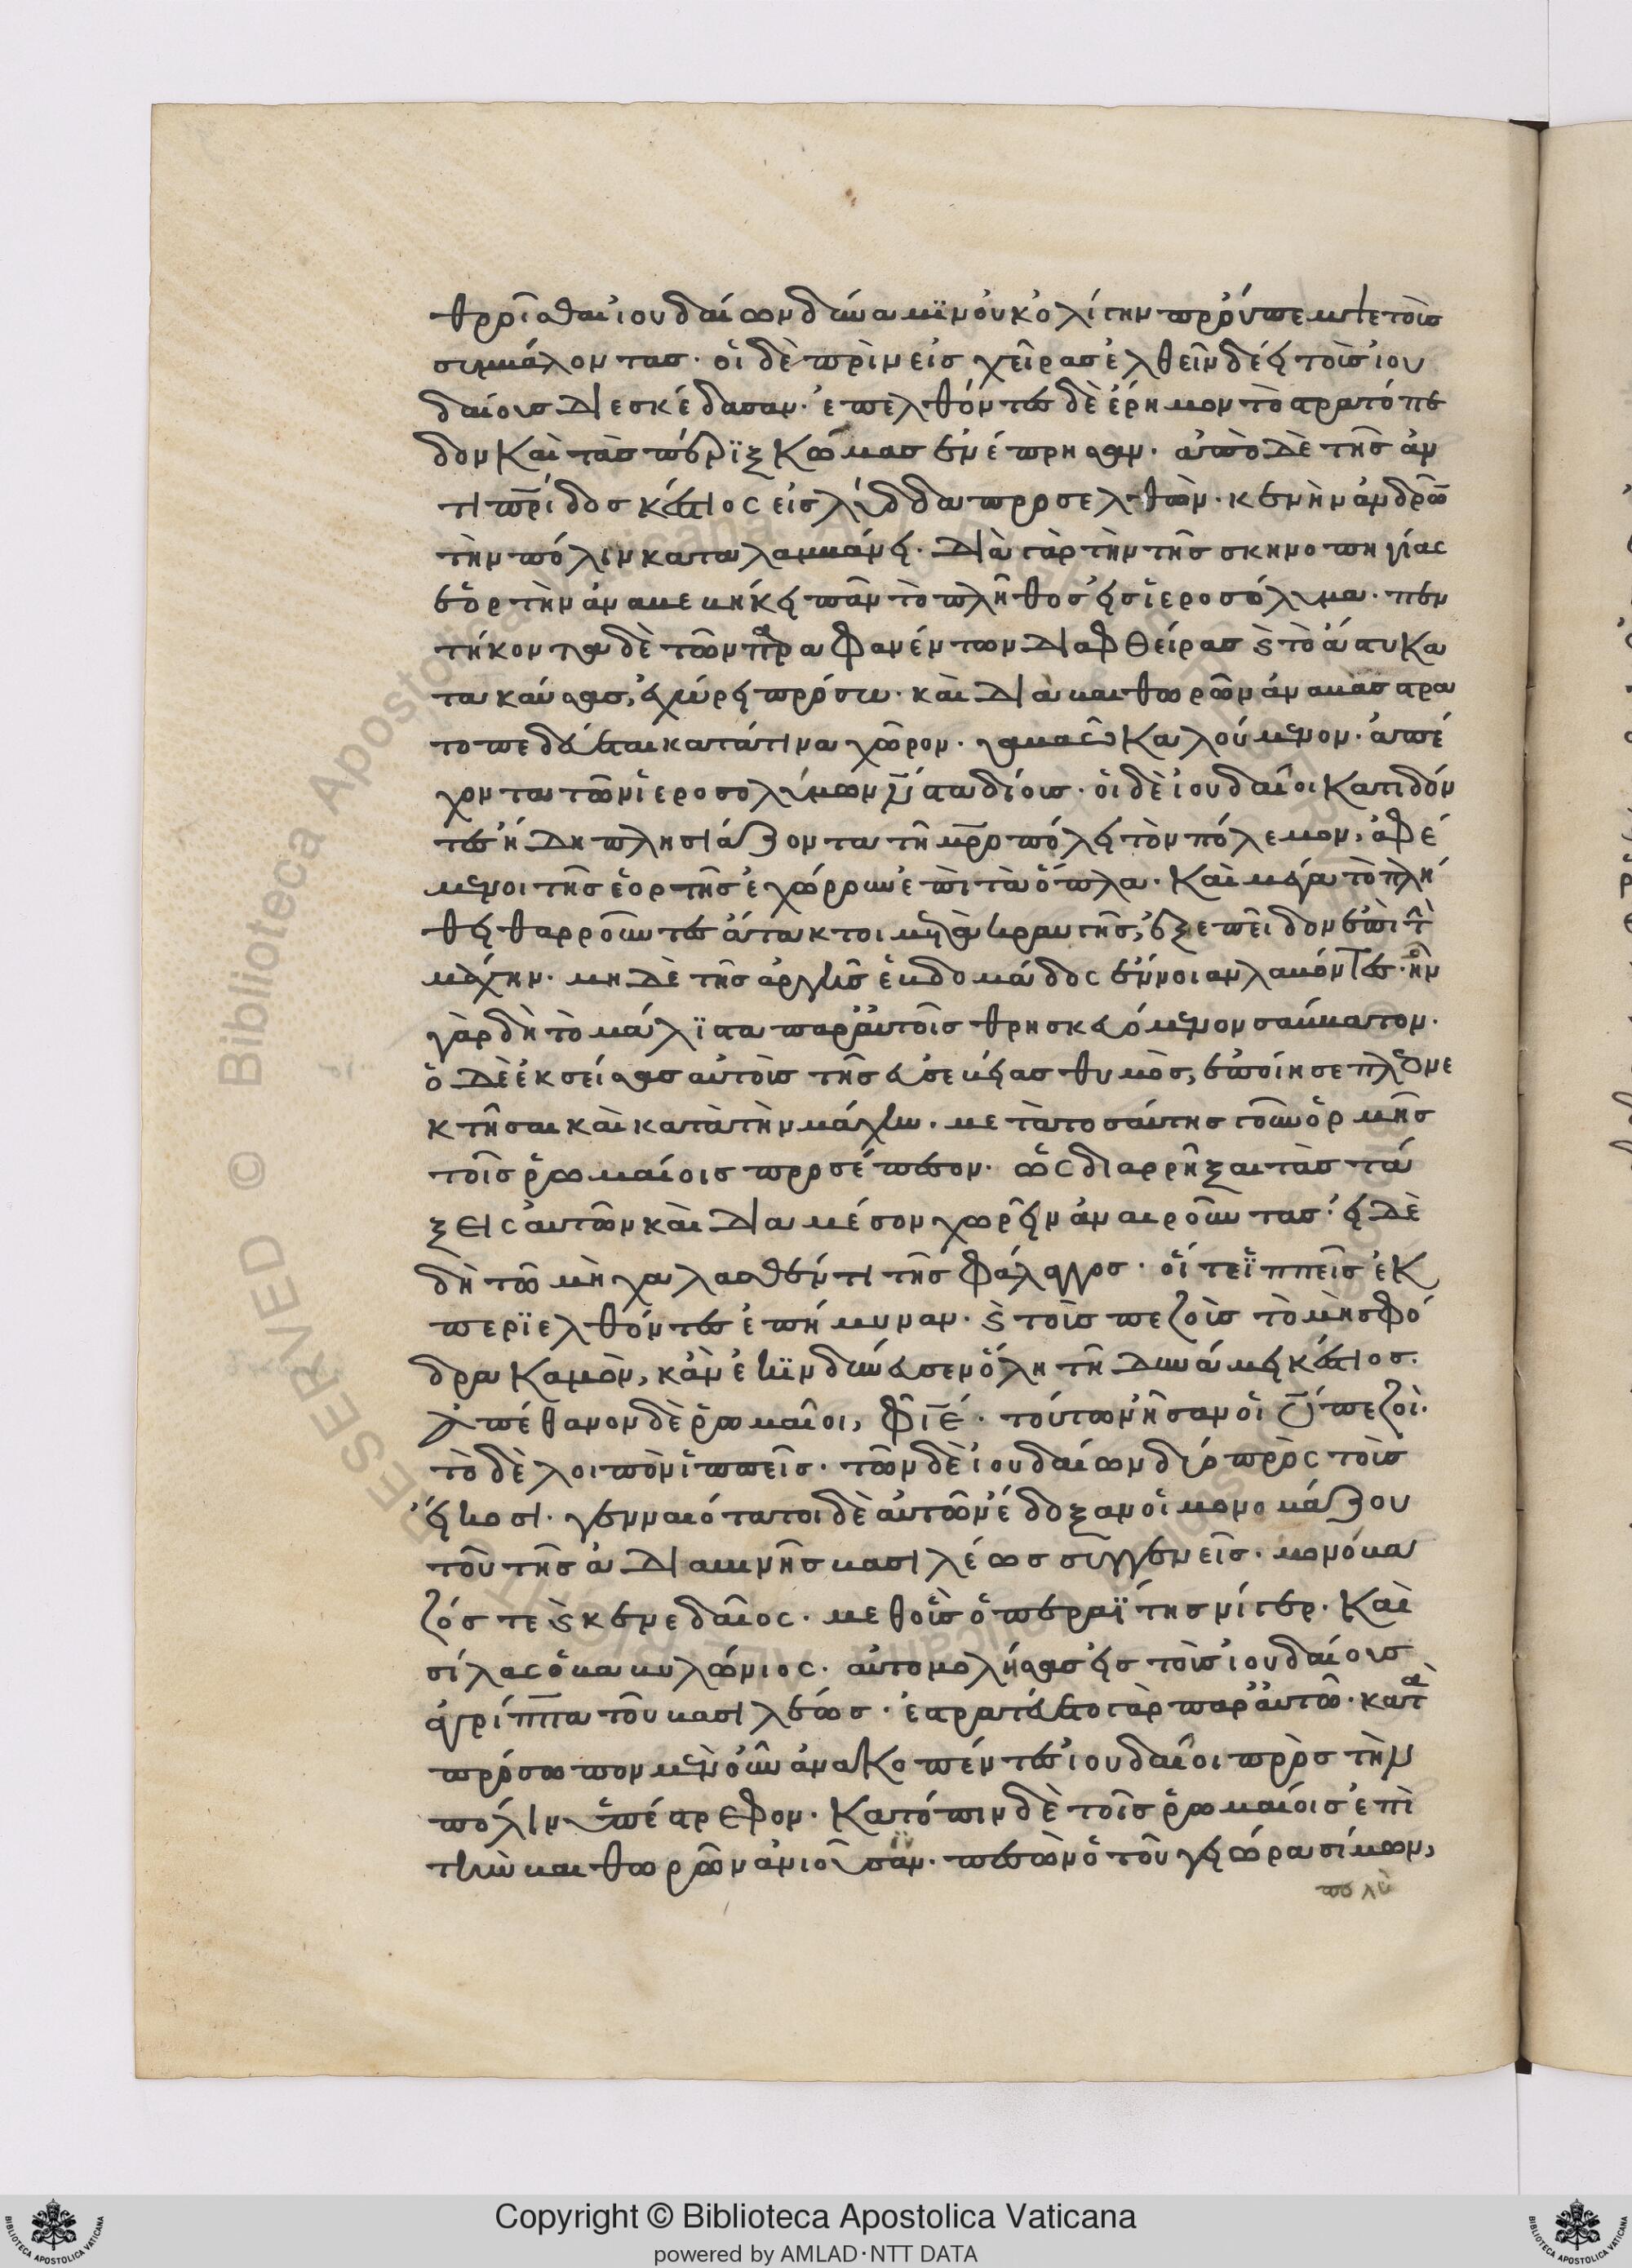 θροῖσθαι ἰουδαίων δύναμϊν οὐκ ὀλίγην προύπεμψε τοὺς
συμβάλοντας· οἱ δὲ πρὶν εἰς χεῖρας ἐλθεῖν δέει τοὺς ἰου
δαίους διεσκέδασαν· ἐπελθόντες δὲ ἔρημον τὸ στρατόπε
δον καὶ τὰς πέρϊξ κώμας ἐνέπρησαν· ἀπὸ δὲ τῆς ἀν
τιπρίδος κέστιος εἰς λύδδα προσελθὼν· κενὴν ἀνδρῶ
τὴν πόλιν καταλαμβάνει· διὰ γὰρ τὴν τῆς σκηνοπηγίας
ἑορτὴν ἀναβεβήκει πᾶν τὸ πλῆθος εἰς ἱεροσόλυμα· πεν
τήκοντα δὲ τῶν παραφανέντων διαφθείρας καὶ τὸ ἄστυ κα
τακαύσας, ἐχώρει πρόσω· καὶ διὰ βαιθωρῶν ἀναβὰς στρα
τοπεδεύεται κατά τινα χῶρον· γαβαῶ καλούμενον· ἀπέ
χοντα τῶν ἱεροσολύμων ν̄ σταδίους· οἱ δὲ ἰουδαῖοι κατιδόν
τες ἤδη πλησιάζοντα τῆ μ̄ροπόλει τὸν πόλεμον, ἀφέ
μενοι τῆς ἑορτῆς ἐχώρουν ἐπὶ τὰ ὅπλα· καὶ μέγα τὸ πλή
θει θαρροῦντες ἄτακτοι μετὰ κραυγῆς, ἐξεπεῖδον ἐπὶ τ̂
μάχην· μηδὲ τῆς ἀργῆς ἑβδομάδος ἔννοιαν λαβόντες· ἦν
γὰρ δὴ τὸ μάλϊστα παρ᾽ αὐτοῖς θρησκευόμενον σάββατον·
ὁ δὲ ἐκσείσας αὐτοὺς τῆς εὐσεβείας θυμὸς, ἐποίησε πλεονε
κτῆσαι καὶ κατὰ τὴν μάχην· μετὰ τοσαύτης γοῦν ὁρμῆς
τοῖς ῥωμαίοις προσέπεσον· ὡς διαρρῆξαι τὰς τά
ξεις αὐτῶν καὶ διὰ μέσου χωρεῖν ἀναιροῦντας· εἰ δὲ
δὴ τῶ μὴ χαλασθέντι τῆς φάλαγγος· οἵ τε ἱππεῖς ἐκ
περϊελθόντες ἐπήμυναν· καὶ τοῖς πεζοῖς τὸ μὴ σφό
δρα καμὸν, κἂν ἐκϊνδύνευσεν ὅλη τῆ δυνάμει κέστιος·
ἀπέθανον δὲ ῥωμαῖοι, φ̄ῑε̄· τούτων ἦσαν οἱ ῡ πεζοὶ·
τὸ δὲ λοιπὸν ἱππεῖς· τῶν δὲ ἰουδαίων δύο πρὸς τοῖς
εἴκοσι· γενναιότατοι δὲ αὐτῶν ἔδοξαν οἱ μονοβάζου
τοῦ τῆς ἀδιαβηνῆς βασιλέως συγγενεῖς· μονόβα
ζός τε καὶ κενεδαῖος· μεθ᾽ οἷς ὁ περαΐτης νίγερ· καὶ
σίλας ὁ βαβυλώνιος· αὐτομολήσας εἰς τοὺς ἰουδαίους
ἀγρίππα τοῦ βασιλέως· ἐστρατεύετο γὰρ παρ᾽ αὐτῶ· κατὰ
πρόσωπον μὲν οὖν ἀνακοπέντες ἰουδαῖοι πρὸς τὴν
πόλιν ὑπέστρεφον· κατόπιν δὲ τοῖς ῥωμαίοις ἐπὶ
τὴν βαιθωρῶν ἀνιοῦσαν· πεσὼν ὁ τοῦ γειώρα σίμων,
πολὺ